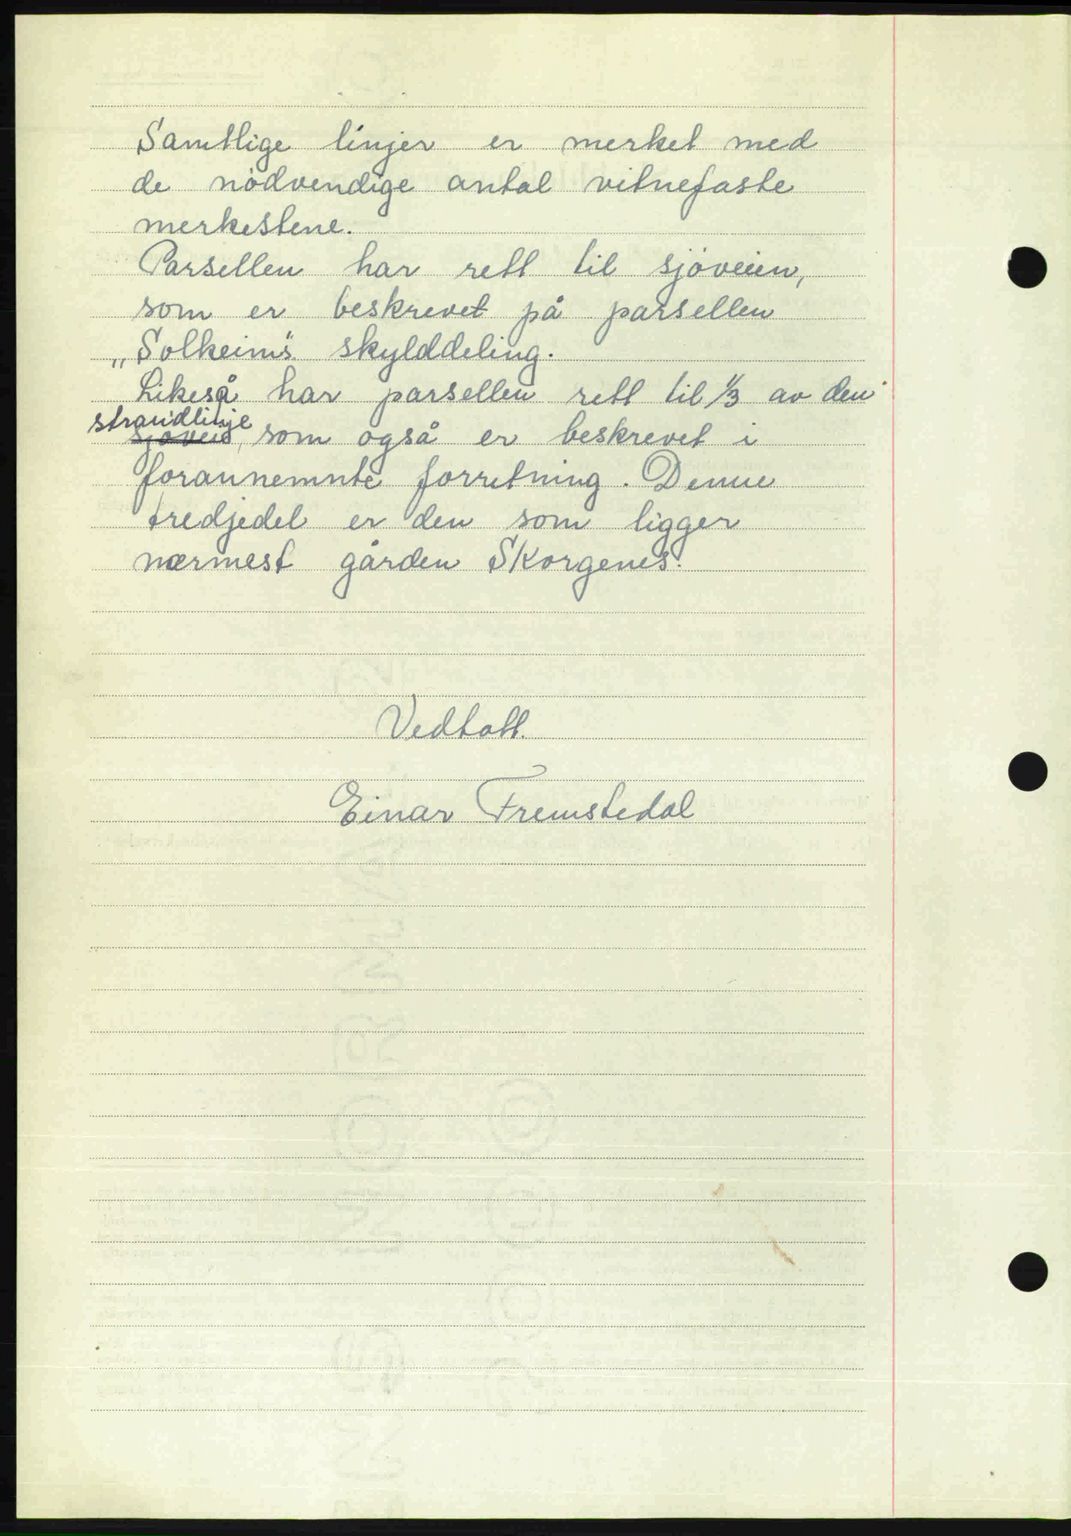 Samtlige linjer er merket med
de nödvendige antal vitnefaste
merkestene.
Parsellen har rett til sjöveien,
som er beskrevet på parsellen
„Solheim's skylddeling.
Likeså har parsellen rett til 1/3 av den
strandlinje
sjöveis, som også er beskrevet i
forannemnte forretning. Denne
tredjedel er den som ligger
nærmest gården Skorgenes.
Vedtatt.
Einar Fremstedal